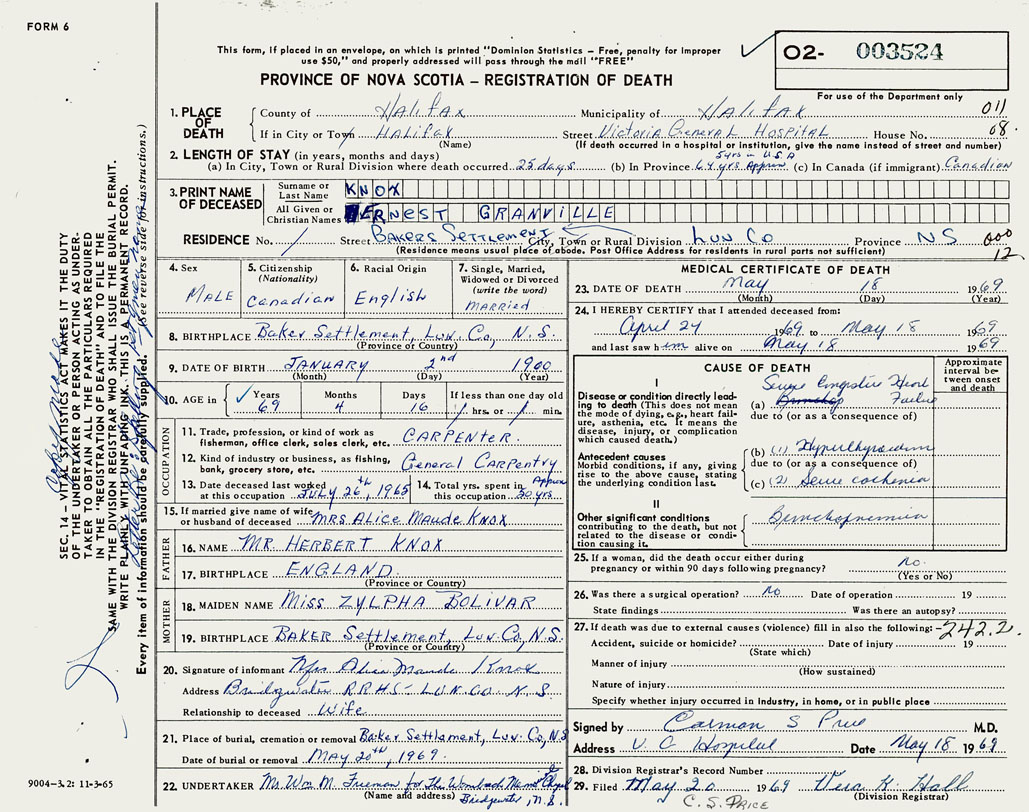 FORM 6
This form, if placed in an envelope, on which is printed "Dominion Statistics – Free, penalty for improper
use $50," and properly addressed will pass through the mail "FREE"
PROVINCE OF NOVA SCOTIA – REGISTRATION OF DEATH
02- 003524
For use of the Department only
1. PLACE OF DEATH
County of Halifax Municipality of Halifax 011
If in City or Town Halifax Street Victoria General Hospital House No. 08.
(Name) (If death occurred in a hospital or institution, give the name instead of street and number)
2. LENGTH OF STAY (in years, months and days) 5 yrs in U.S.A
(a) In City, Town or Rural Division where death occurred 25 days (b) In Province 64 yrs Approx (c) In Canada (if immigrant) Canadian
3. PRINT NAME OF DECEASED
Surname or Last Name KNOX
All Given or Christian Names ERNEST GRANVILLE
RESIDENCE No. / Street Bakers Settlement City, Town or Rural Division Lun Co Province NS 000
(Residence means usual place of abode. Post Office Address for residents in rural parts not sufficient) 12
4. Sex MALE
5. Citizenship (Nationality) Canadian
6. Racial Origin English
7. Single, Married, Widowed or Divorced (write the word) MARRIED
8. BIRTHPLACE Baker Settlement, Lun. Co, N.S.
(Province or Country)
9. DATE OF BIRTH JANUARY 2nd 1900
(Month) (Day) (Year)
10. AGE in Years 69 Months 4 Days 16 If less than one day old / hrs. or / min.
OCCUPATION
11. Trade, profession, or kind of work as fisherman, office clerk, sales clerk, etc. CARPENTER.
12. Kind of industry or business, as fishing, bank, grocery store, etc. General Carpentry
13. Date deceased last worked at this occupation JULY 26th, 1965 14. Total yrs. spent in this occupation Approx 30 yrs
15. If married give name of wife or husband of deceased MRS. ALICE MAUDE KNOX
FATHER
16. NAME MR. HERBERT KNOX
17. BIRTHPLACE ENGLAND.
(Province or Country)
MOTHER
18. MAIDEN NAME Miss ZYLPHA BOLIVAR
19. BIRTHPLACE BAKER Settlement, Lun. Co, N.S.
(Province or Country)
20. Signature of informant Mrs Alice Maude Knox
Address Bridgewater R.R.#5 - LUN. CO. N.S.
Relationship to deceased Wife
21. Place of burial, cremation or removal Baker Settlement, Lun. Co, N.S
Date of burial or removal MAY 20th, 1969.
22. UNDERTAKER Mr Wm M. for The Chapel
(Name and address) Bridgewater, N.S.
MEDICAL CERTIFICATE OF DEATH
23. DATE OF DEATH May 18 1969
(Month) (Day) (Year)
24. I HEREBY CERTIFY that I attended deceased from:
April 24 1969 to May 18 1969
and last saw him alive on May 18 1969
CAUSE OF DEATH
Approximate interval between onset and death
I
Disease or condition directly leading to death (This does not mean the mode of dying, e.g., heart failure, asthenia, etc. It means the disease, injury, or complication which caused death.)
(a) Severe Congestive Heart Failure
due to (or as a consequence of)
Antecedent causes
Morbid conditions, if any, giving rise to the above cause, stating the underlying condition last.
(b) (1) Hyperthyroidism
due to (or as a consequence of)
(c) (2) Severe cachexia
II
Other significant conditions contributing to the death, but not related to the disease or condition causing it.
Bronchopneumonia
25. If a woman, did the death occur either during pregnancy or within 90 days following pregnancy? no.
(Yes or No)
26. Was there a surgical operation? no Date of operation 19
State findings Was there an autopsy?
27. If death was due to external causes (violence) fill in also the following: 242.2
Accident, suicide or homicide? Date of injury 19
(State which)
Manner of injury
(How sustained)
Nature of injury
Specify whether injury occurred in industry, in home, or in public place
Signed by Carman S Price M.D.
Address V. G. Hospital Date May 18 1969
28. Division Registrar's Record Number
29. Filed May 20 1969 Vera K. Hall
(Division Registrar)
C. S. PRICE
SEC. 14 – VITAL STATISTICS ACT MAKES IT THE DUTY
OF THE UNDERTAKER OR PERSON ACTING AS UNDER-
TAKER TO OBTAIN ALL THE PARTICULARS REQUIRED
IN THE "REGISTRATION OF DEATH" AND TO FILE THE
SAME WITH THE DIVISION REGISTRAR WHO SHALL ISSUE THE BURIAL PERMIT.
WRITE PLAINLY WITH UNFADING INK. THIS IS A PERMANENT RECORD.
Every item of information should be carefully supplied. (See reverse side for instructions.)
9004-3.2: 11-3-65